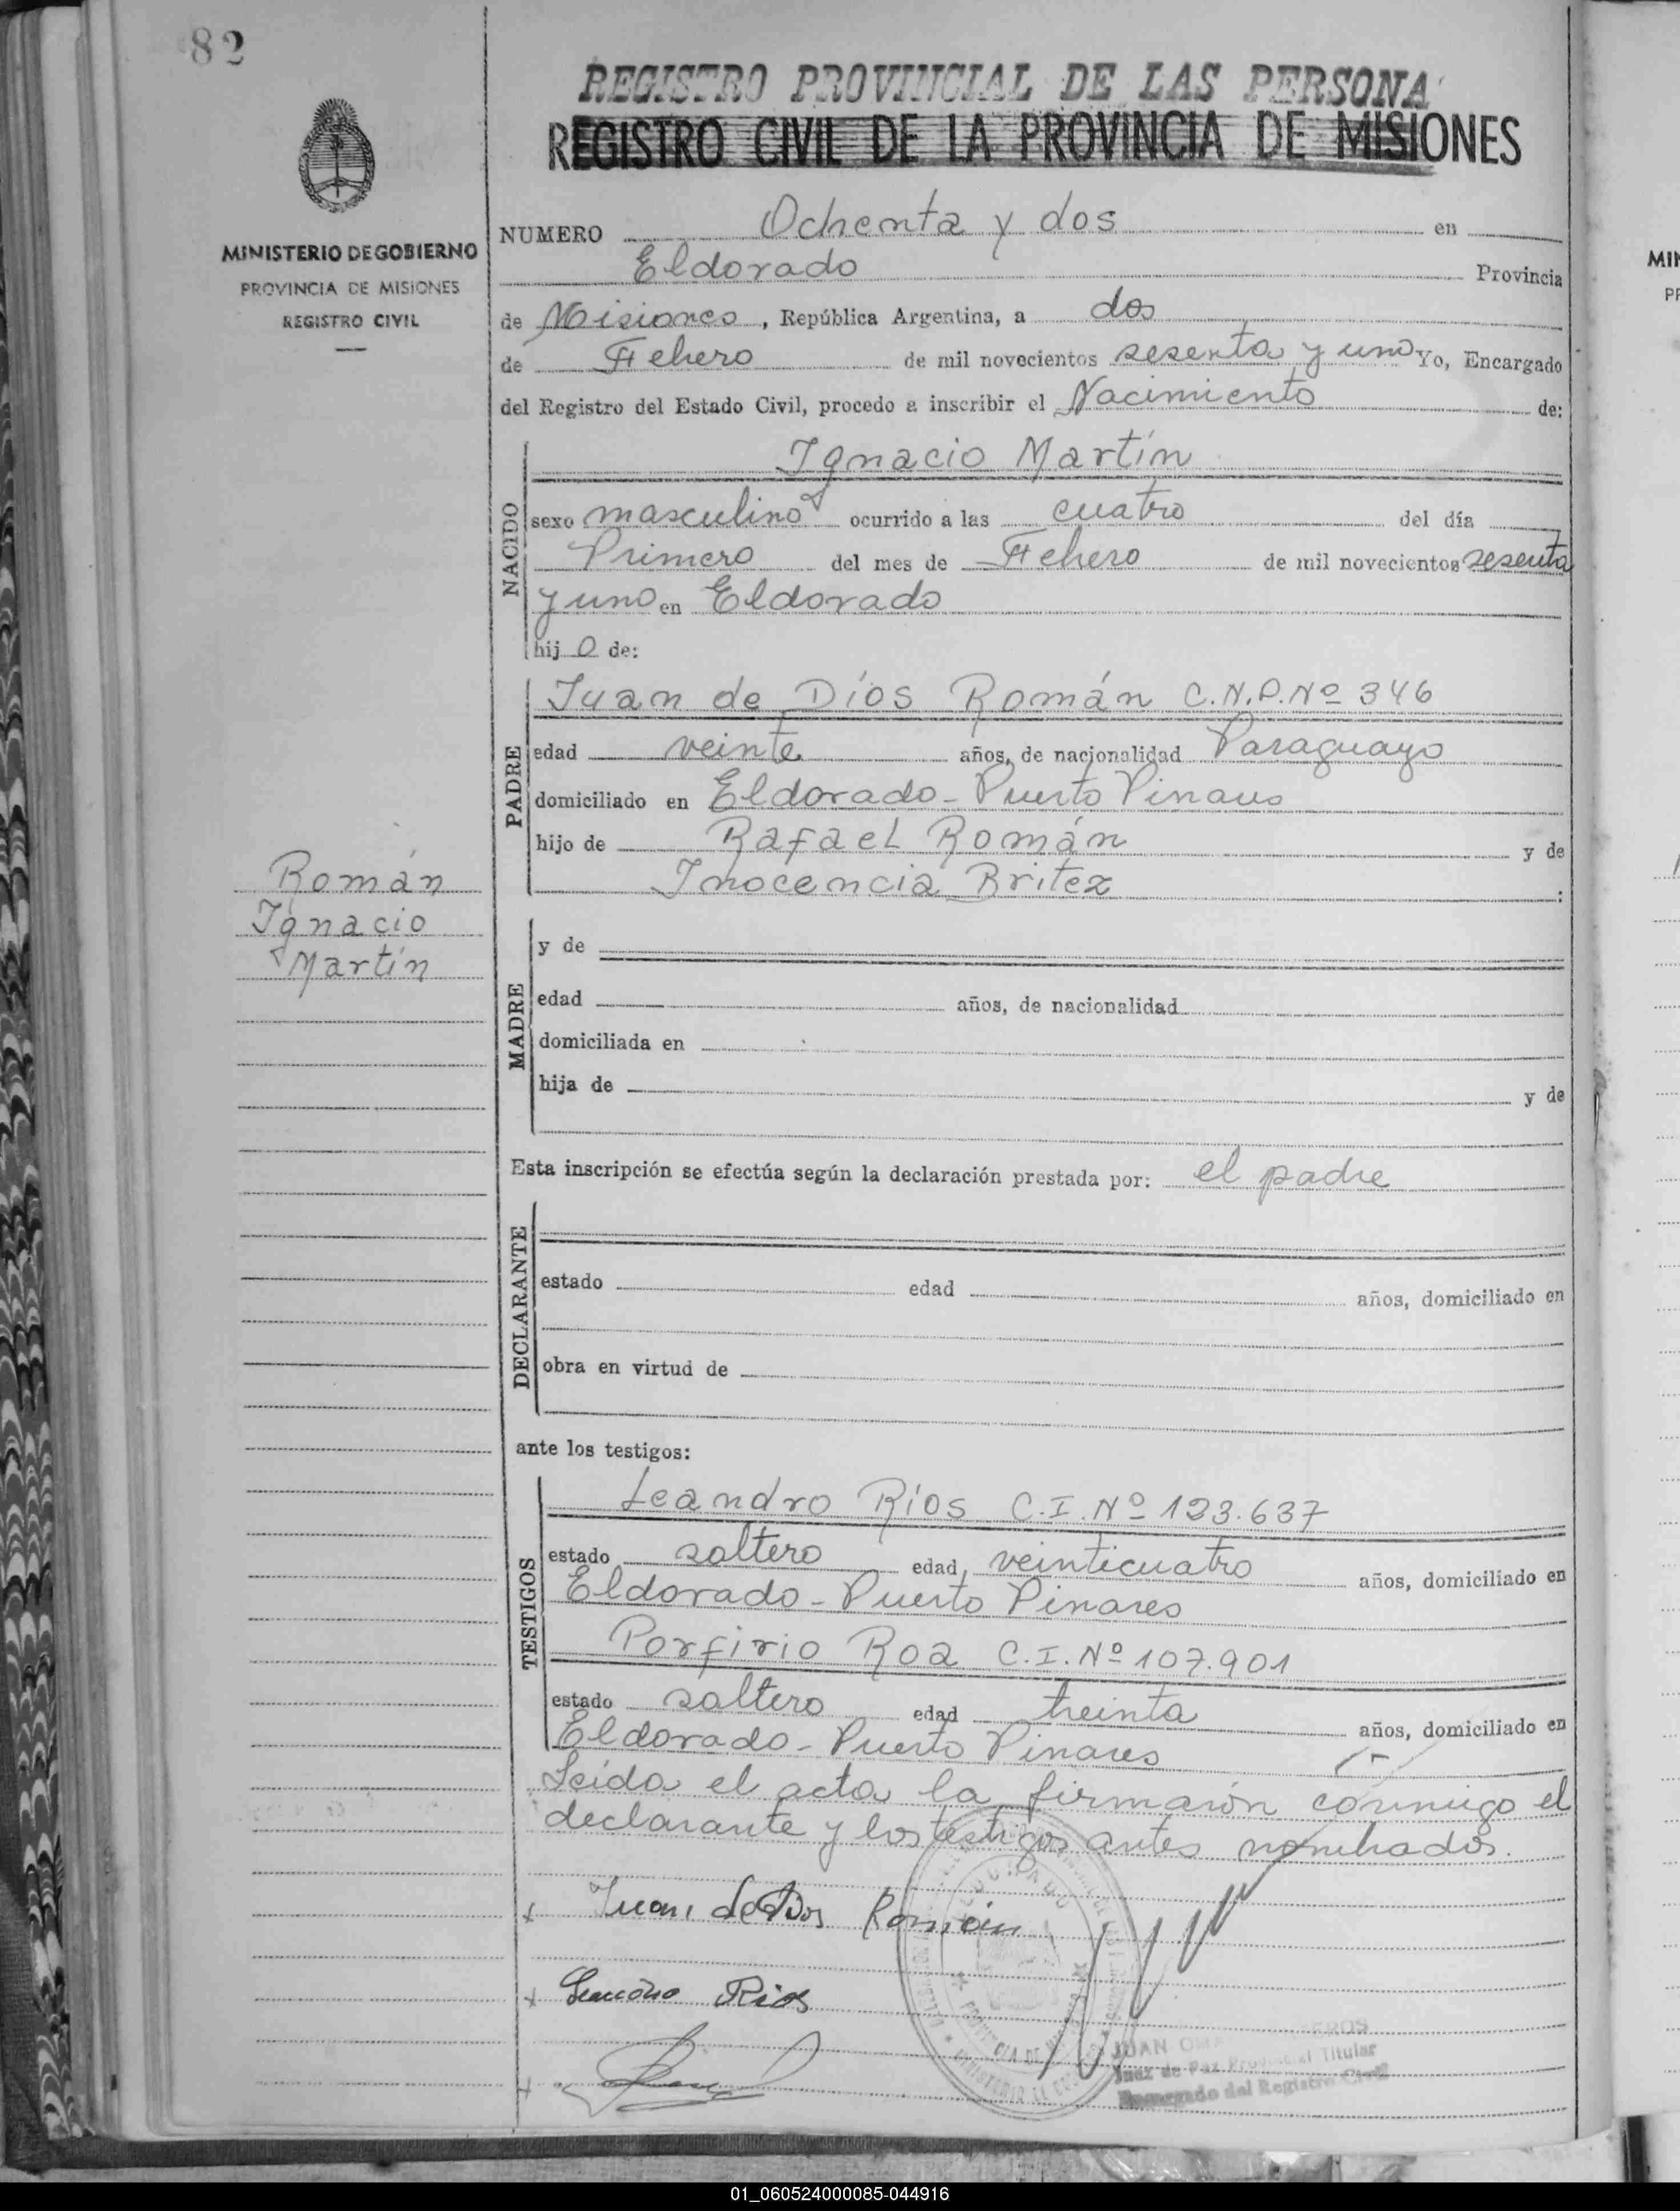 82
REGISTRO PROVINCIAL DE LAS PERSONA
REGISTRO CIVIL DE LA PROVINCIA DE MISIONES
MINISTERIO DE GOBIERNO
PROVINCIA DE MISIONES
REGISTRO CIVIL
NUMERO Ochenta y dos en
Eldorado Provincia
de Misiones, República Argentina, a dos
de Febrero de mil novecientos sesenta y uno Yo, Encargado
del Registro del Estado Civil, procedo a inscribir el Nacimiento de:
NACIDO
Ignacio Martín
sexo masculino ocurrido a las cuatro del día
Primero del mes de Febrero de mil novecientos sesenta
y uno en Eldorado
hijo de:
PADRE
Juan de Díos Román C.N.P.Nº 346
edad veinte años, de nacionalidad Paraguayo
domiciliado en Eldorado - Puerto Pinares
hijo de Rafael Román y de
Inocencia Britez ;
Román
Ignacio
Martín
MADRE
y de
edad años, de nacionalidad
domiciliada en
hija de y de
Esta inscripción se efectúa según la declaración prestada por: el padre
DECLARANTE
estado edad años, domiciliado en
obra en virtud de
ante los testigos:
TESTIGOS
Leandro Ríos C.I.Nº 123.637
estado soltero edad veinticuatro años, domiciliado en
Eldorado - Puerto Pinares
Porfirio Roa C.I.Nº 107.901
estado soltero edad treinta años, domiciliado en
Eldorado - Puerto Pinares
Leida el acta la firmarón conmigo el
declarante y los testigos antes nombrados.
x Juan de Dios Román
x Leandro Rios
x
JUAN
Juez de Paz Provincial Titular
Encargado del Registro Civil
01_060524000085-044916